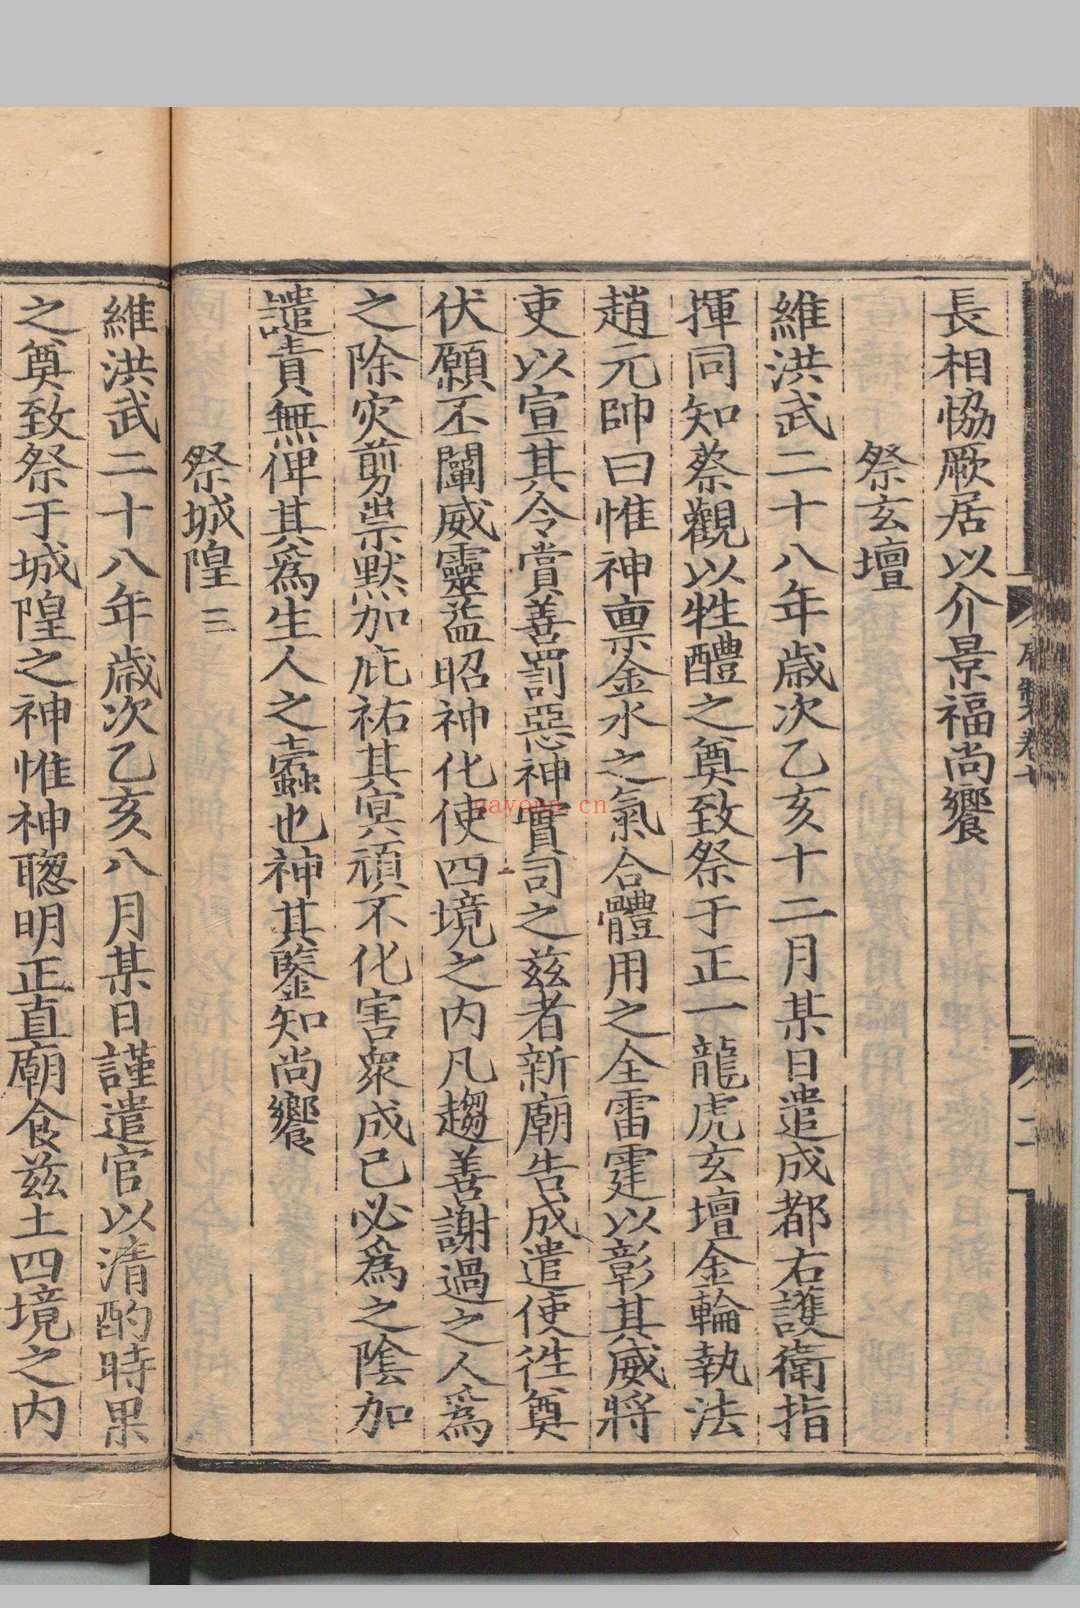 長相恊厥居以介景福尚饗
祭玄壇
維洪武二十八年歲次乙亥十二月某日遣成都右護衛指
揮同知蔡觀以牲醴之奠致祭于正一龍虎玄壇金輪執法
趙元帥曰惟神稟金水之氣合體用之全雷霆以彰其威將
吏以宣其令賞善罰惡神實司之兹者新廟告成遣使徃奠
伏願丕闡威靈益昭神化使四境之内凡趨善謝過之人爲
之除灾剪祟默加庇祐其冥頑不化害衆成已必爲之隂加
譴責無俾其爲生人之蠧也神其鑒知尚饗
祭城隍 三
維洪武二十八年歲次乙亥八月某日謹遣官以清酌時果
之奠致祭于城隍之神惟神聰明正直廟食兹土四境之内
nayona.cn